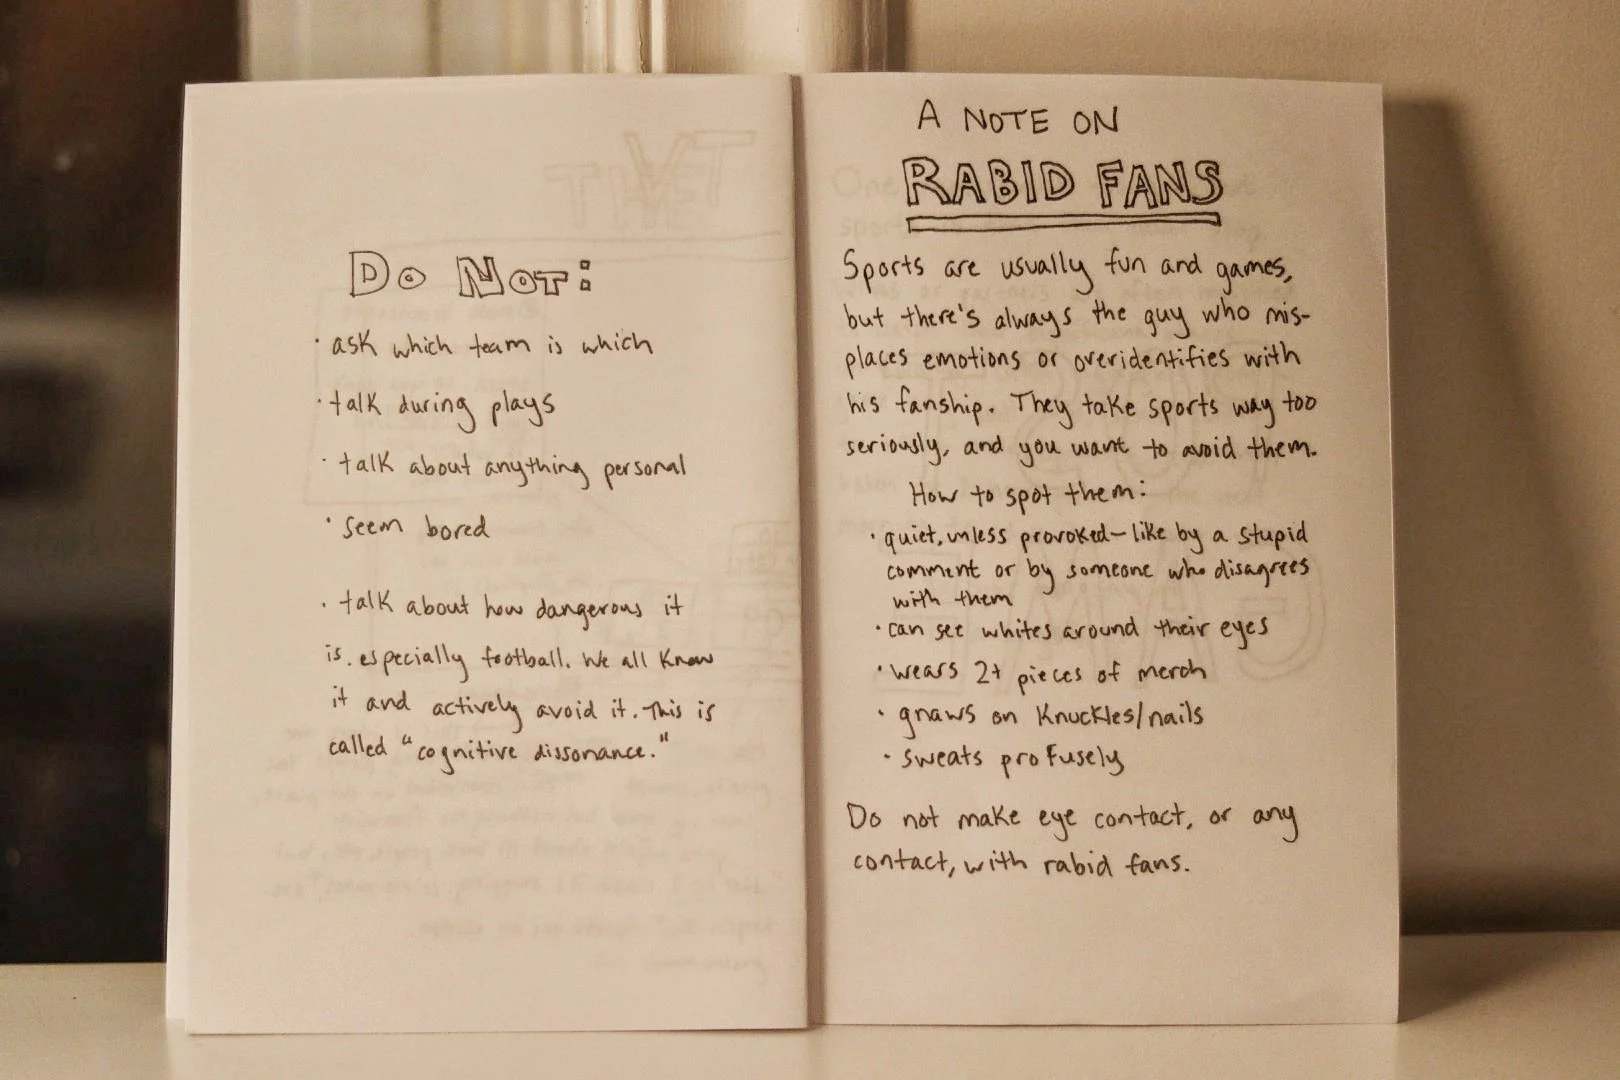 Do Not:
· ask which team is which
· talk during plays
· talk about anything personal
· seem bored
· talk about how dangerous it
is. especially football. We all know
it and actively avoid it. This is
called "cognitive dissonance."
A NOTE ON
RABID FANS
Sports are usually fun and games,
but there's always the guy who mis-
places emotions or overidentifies with
his fanship. They take sports way too
seriously, and you want to avoid them.
How to spot them:
· quiet, unless provoked— like by a stupid
comment or by someone who disagrees
with them
· can see whites around their eyes
· wears 2+ pieces of merch
· gnaws on knuckles/nails
· sweats profusely
Do not make eye contact, or any
contact, with rabid fans.